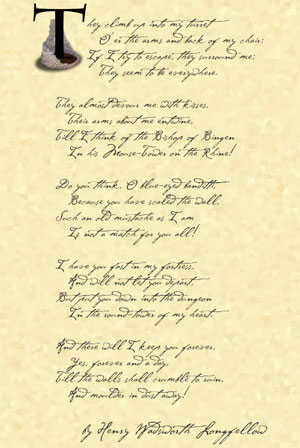 They climb up into my turret
O'er the arms and back of my chair;
If I try to escape, they surround me;
They seem to be everywhere.
They almost devour me with kisses,
Their arms about me entwine,
Till I think of the Bishop of Bingen
In his Mouse-Tower on the Rhine!
Do you think, O blue-eyed banditti,
Because you have scaled the wall,
Such an old mustache as I am
Is not a match for you all!
I have you fast in my fortress,
And will not let you depart,
But put you down into the dungeon
In the round-tower of my heart.
And there will I keep you forever,
Yes, forever and a day,
Till the walls shall crumble to ruin,
And moulder in dust away!
by Henry Wadsworth Longfellow